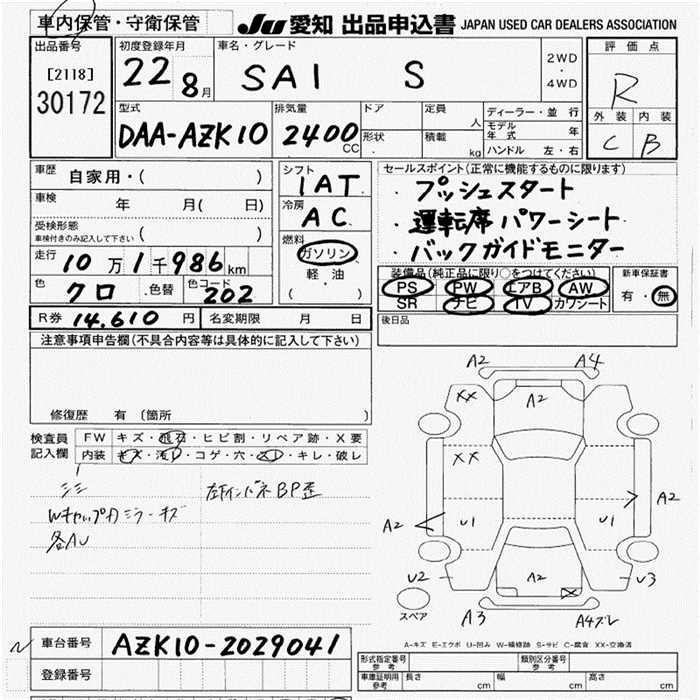 車内保管・守衛保管
JU 愛知 出品申込書 JAPAN USED CAR DEALERS ASSOCIATION
出品番号
[2118]
30172
初度登録年月
22 8月
車名・グレード
SAI S
2WD
・
4WD
評価点
R
外装 内装
C B
型式
DAA-AZK10
排気量
2400
CC
ドア
形状
定員
人
積載
kg
ディーラー・並行
モデル年式 年
ハンドル 左・右
車歴
自家用・( )
車検 年 月( 日)
受検形態
車検付きのみ記入して下さい ( )
走行
10万1千986km
色 クロ ・色替 色コード 202
R券 14.610円 名変期限 月 日
シフト
1AT
冷房
AC
燃料
ガソリン
軽・油
( )
セールスポイント(正常に機能するものに限ります)
・プッシュスタート
・運転席パワーシート
・バックガイドモニター
装備品(純正品に限り○をつけてください)
PS PW エアB AW
SR ナビ TV カワシート
新車保証書
有・無
後日品
注意事項申告欄(不具合内容等は具体的に記入して下さい)
修復歴 有 (箇所 )
検査員
記入欄
FW キズ・飛石・ヒビ割・リペア跡・X要
内装 キズ・汚レ・コゲ・穴・スレ・キレ・破レ
シミ
Wキャップ力ミラーキズ
各AU
左下インパネBP歪
A2 A4
XX A2
XX
A2 U1 U1 A2
U2 A2 U3
スペア A3 A4ズレ
A-キズ E-エクボ U-凹み W-補修跡 S-サビ C-腐食 XX-交換済
車台番号 AZK10-2029041
登録番号
型式指定番号
参考
類別区分番号
参考
車庫証明用
参考
長さ cm 幅 cm 高さ cm